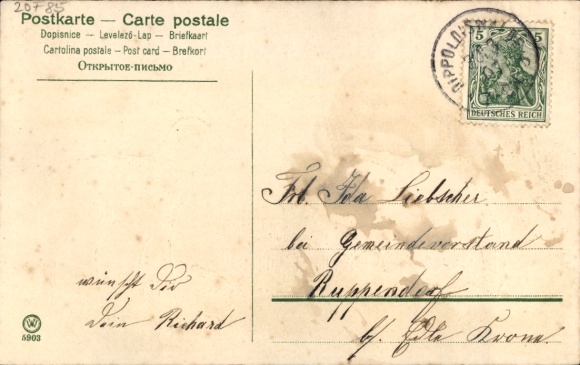 20785
Postkarte — Carte postale
Dopisnice — Levelező-Lap — Briefkaart
Cartolina postale — Post card — Brefkort
Открытое-письмо
DIPPOLDISWALDE
5 5
DEUTSCHES REICH
Frl. Ida Liebscher
bei Gemeindevorstand
Ruppendorf
b/ Edle Krone.
wünscht Dir
Dein Richard
W
5903